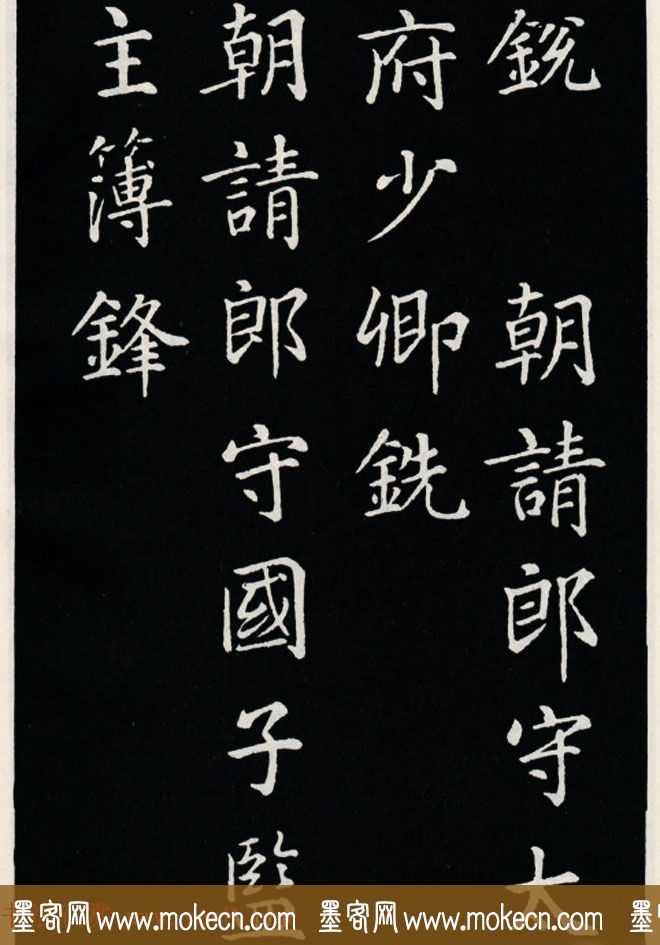 銳　朝請郎守太
府少卿銑
朝請郎守國子監
主簿鋒
墨客网 www.mokecn.com 墨客网 www.mokecn.com